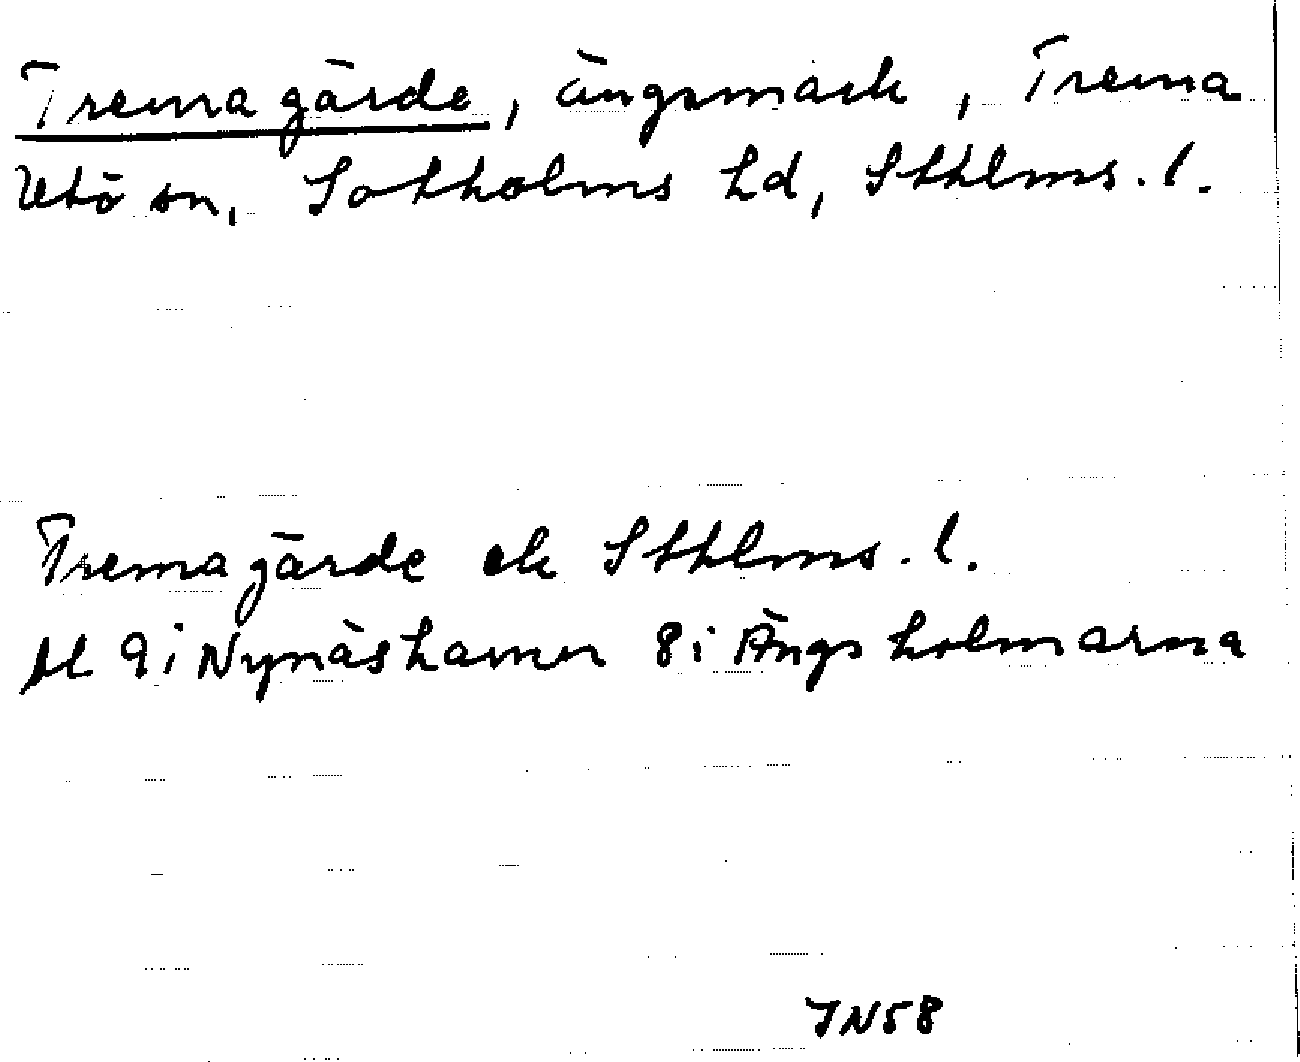 Tremagärde, ängsmark, Trema
Utö sn, Sotholms hd, Sthlms. l.
Tremagärde ek Sthlms. l.
bl 9i Nynäshamn 8i Ängsholmarna
JN58